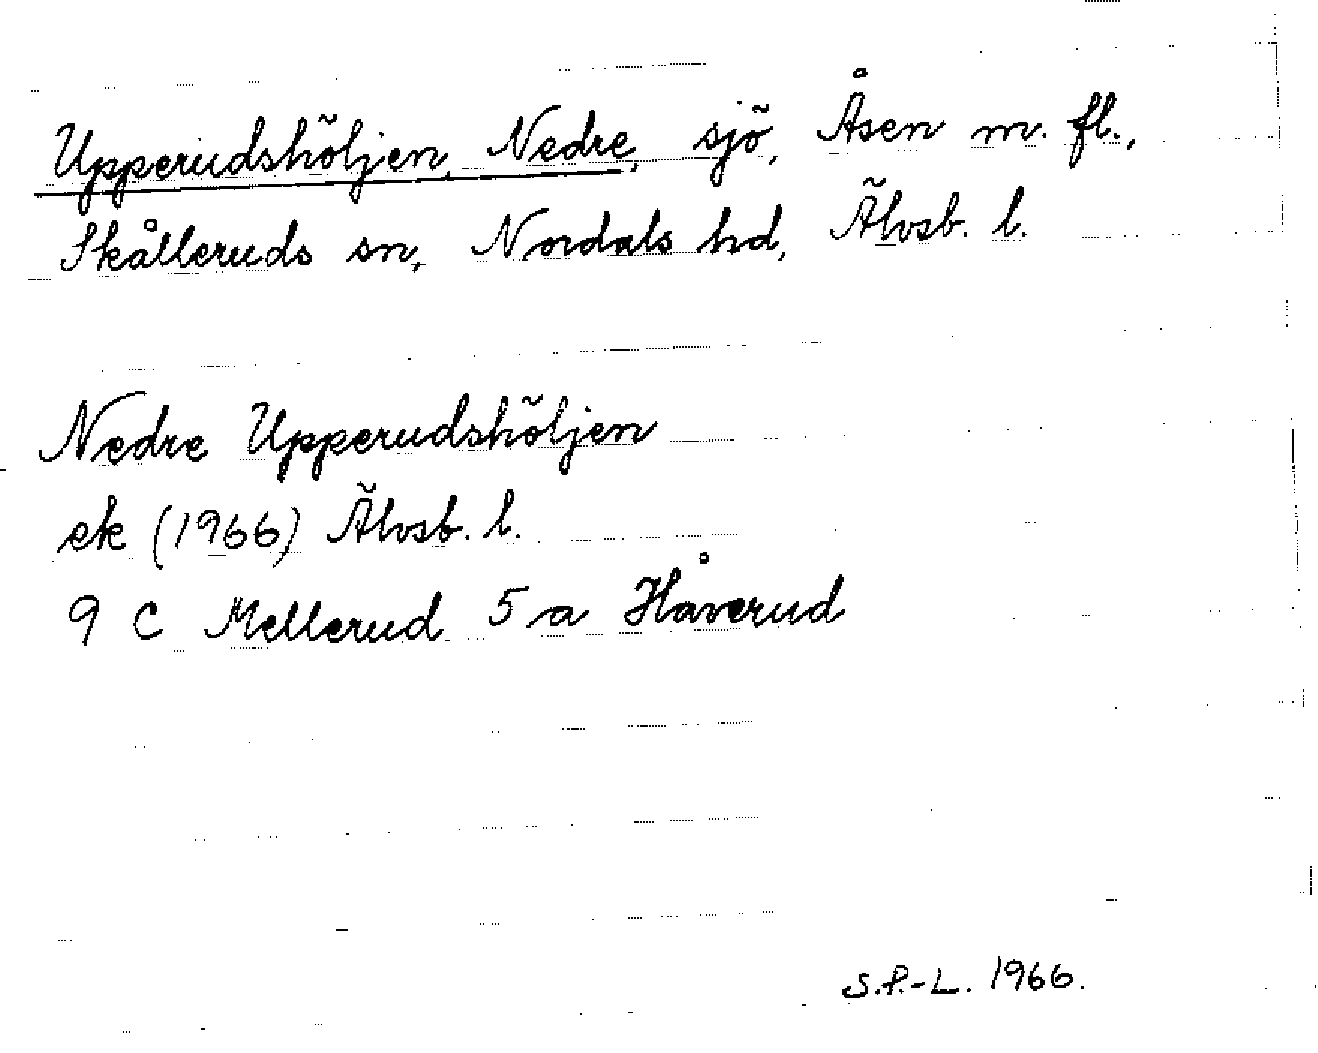 Upperudshöljen, Nedre, sjö, Åsen m. fl.,
Skålleruds sn, Nordals hd, Älvsb. l.
Nedre Upperudshöljen
ek (1966) Älvsb. l.
9 C Mellerud 5 a Håverud
S.P.-L. 1966.